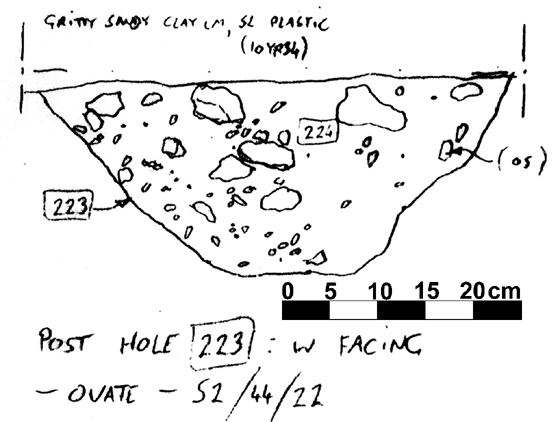 GRITTY SANDY CLAY LM, SL PLASTIC
(10YR54)
224
(OS)
223
0 5 10 15 20cm
POST HOLE 223 : W FACING
- OVATE - S2/44/22